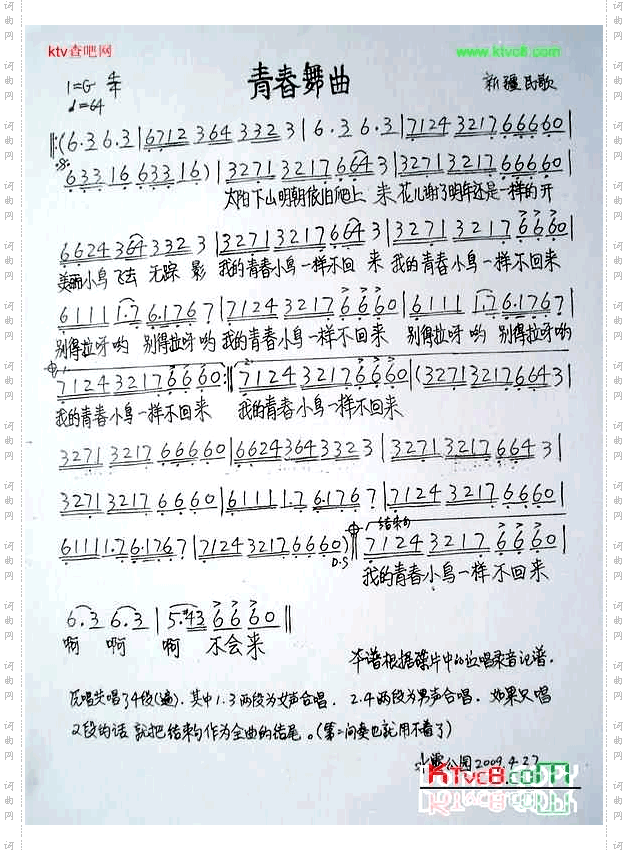 ktv查吧网
www.ktvc8.com
青春舞曲
1=G 4/4
新疆民歌
♩=64
‖:(6·3 6·3 | 6712 364 332 3 | 6·3 6·3 | 7124 3217 66660 |
633 16 633 16) | 3271 3217 6643 | 3271 3217 66660 |
太阳下山明朝依旧爬上 来 花儿谢了明年还是一样的开
6624 364 332 3 | 3271 3217 664 3 | 3271 3217 6660 |
美丽小鸟飞去 无踪 影 我的青春小鸟一样不回 来 我的青春小鸟一样不回来
6111 1·7 6·176 7 | 7124 3217 6660 | 6111 1·7 6·176 7 |
别得拉呀哟 别得拉呀哟 我的青春小鸟一样不回来 别得拉呀哟 别得拉呀哟
7124 3217 6660 :‖ 7124 3217 6660 | (3271 3217 664 3 |
我的青春小鸟一样不回来 我的青春小鸟一样不回来
3271 3217 66660 | 6624 364 332 3 | 3271 3217 664 3 |
3271 3217 6660 | 6111 1·7 6·176 7 | 7124 3217 6660 |
6111 1·7 6·176 7 | 7124 3217 6660) ‖ 7124 3217 6660 |
D.S 结束句
我的青春小鸟一样不回来
6·3 6·3 | 5·#43 6660 ‖
啊 啊 啊 不会来
本谱根据碟片中的 唱录音记谱.
唱共唱了4段(遍), 其中1.3两段为女声合唱. 2.4两段为男声合唱. 如果只唱
2段的话 就把结束句作为全曲的结尾。(第二间奏也就用不着了)
公园2009.4.27
KTvc8.com
词曲网